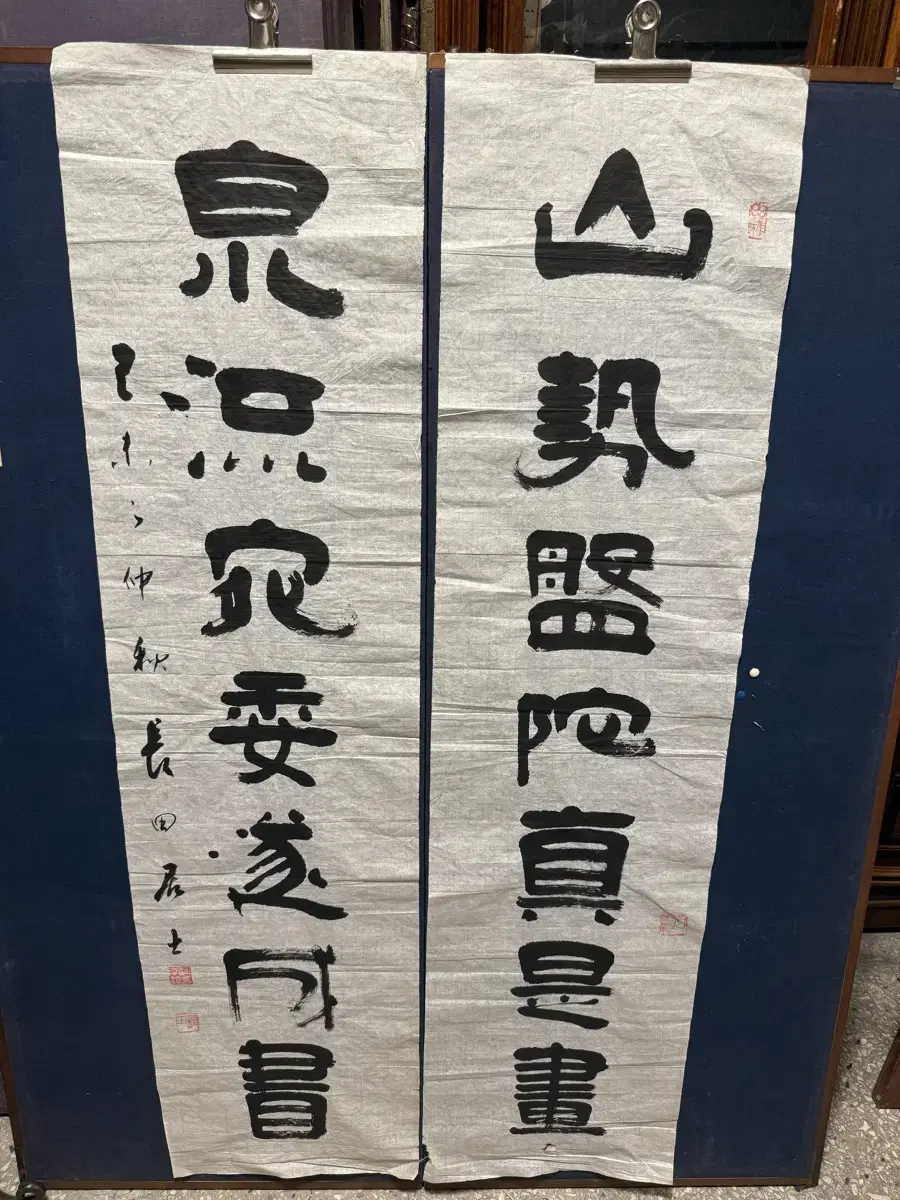 山勢盤陀真是畫
泉流宛委遂成書
己未之仲秋長田居士